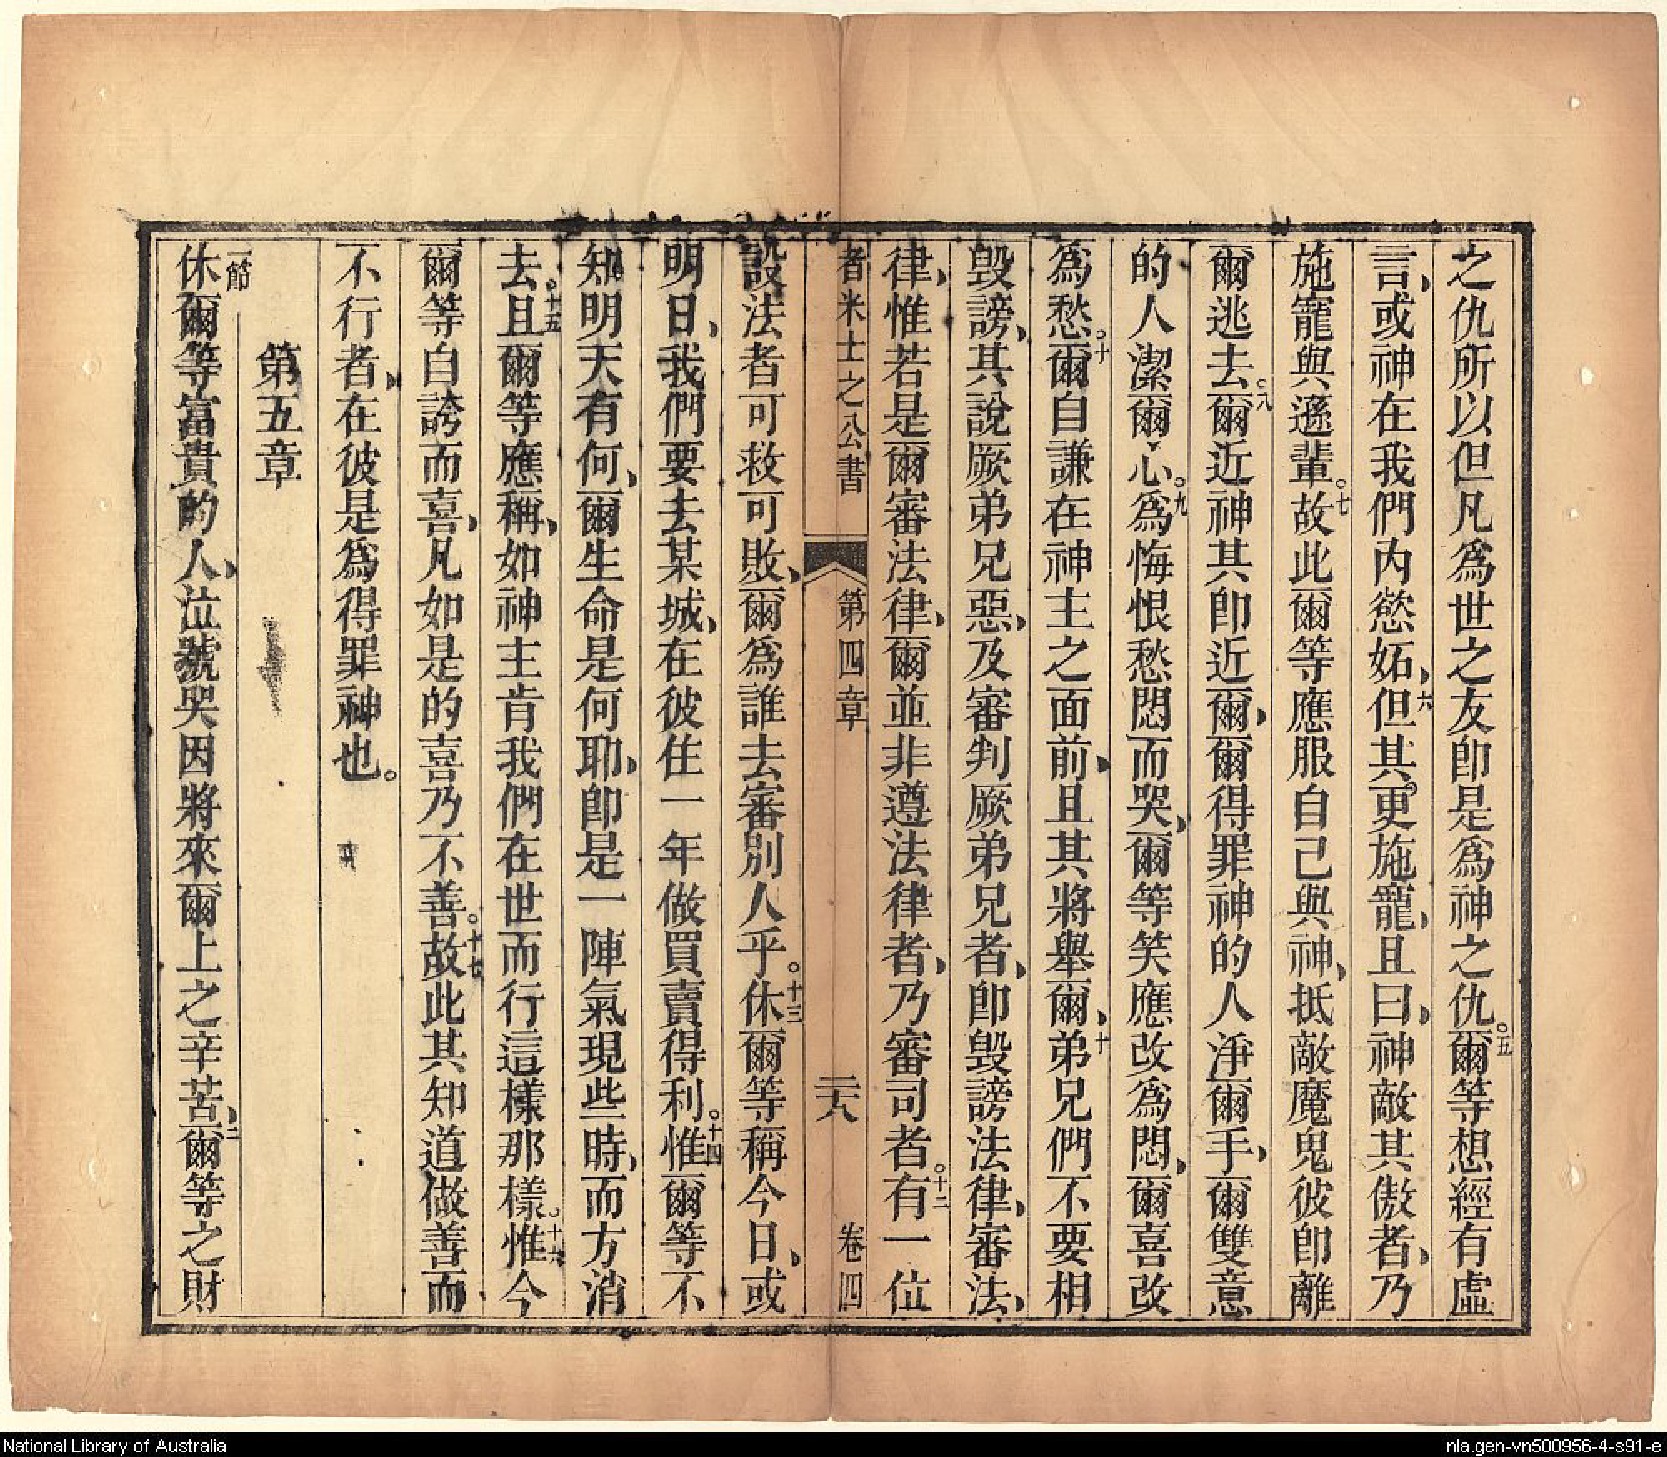 之仇所以但凡爲世之友卽是爲神之仇。五爾等想經有虛
言、或神在我們內慾妬、六但其更施寵、且曰、神敵其傲者、乃
施寵與遜輩。七故此爾等應服自己與神、抵敵魔鬼彼卽離
爾逃去。八爾近神其卽近爾、爾得罪神的人淨爾手、爾雙意
的人潔爾心。九爲悔恨愁悶而哭、爾等笑應改爲悶、爾喜改
為愁。十爾自謙在神主之面前、且其將舉爾、十弟兄們不要相
毀謗、其說厥弟兄惡、及審判厥弟兄者、卽毀謗法律、審法、
律、惟若是爾審法律、爾並非遵法律者、乃審司者。十二有一位
者米士之公書 第四章 二十八 卷四
設法者可救可敗、爾爲誰去審別人乎。十三休爾等稱今日、或
明日、我們要去某城、在彼住一年做買賣得利。十四惟爾等不
知明天有何、爾生命是何耶、卽是一陣氣現些時、而方消
去。十五且爾等應稱、如神主肯我們在世而行這樣那樣。十六惟今
爾等自誇而喜、凡如是的喜乃不善。十七故此其知道做善而
不行者、在彼是爲得罪神也。
第五章
一節休爾等富貴的人、泣號哭因將來爾上之辛苦、二爾等之財
National Library of Australia
nla.gen-vn500956-4-s91-e